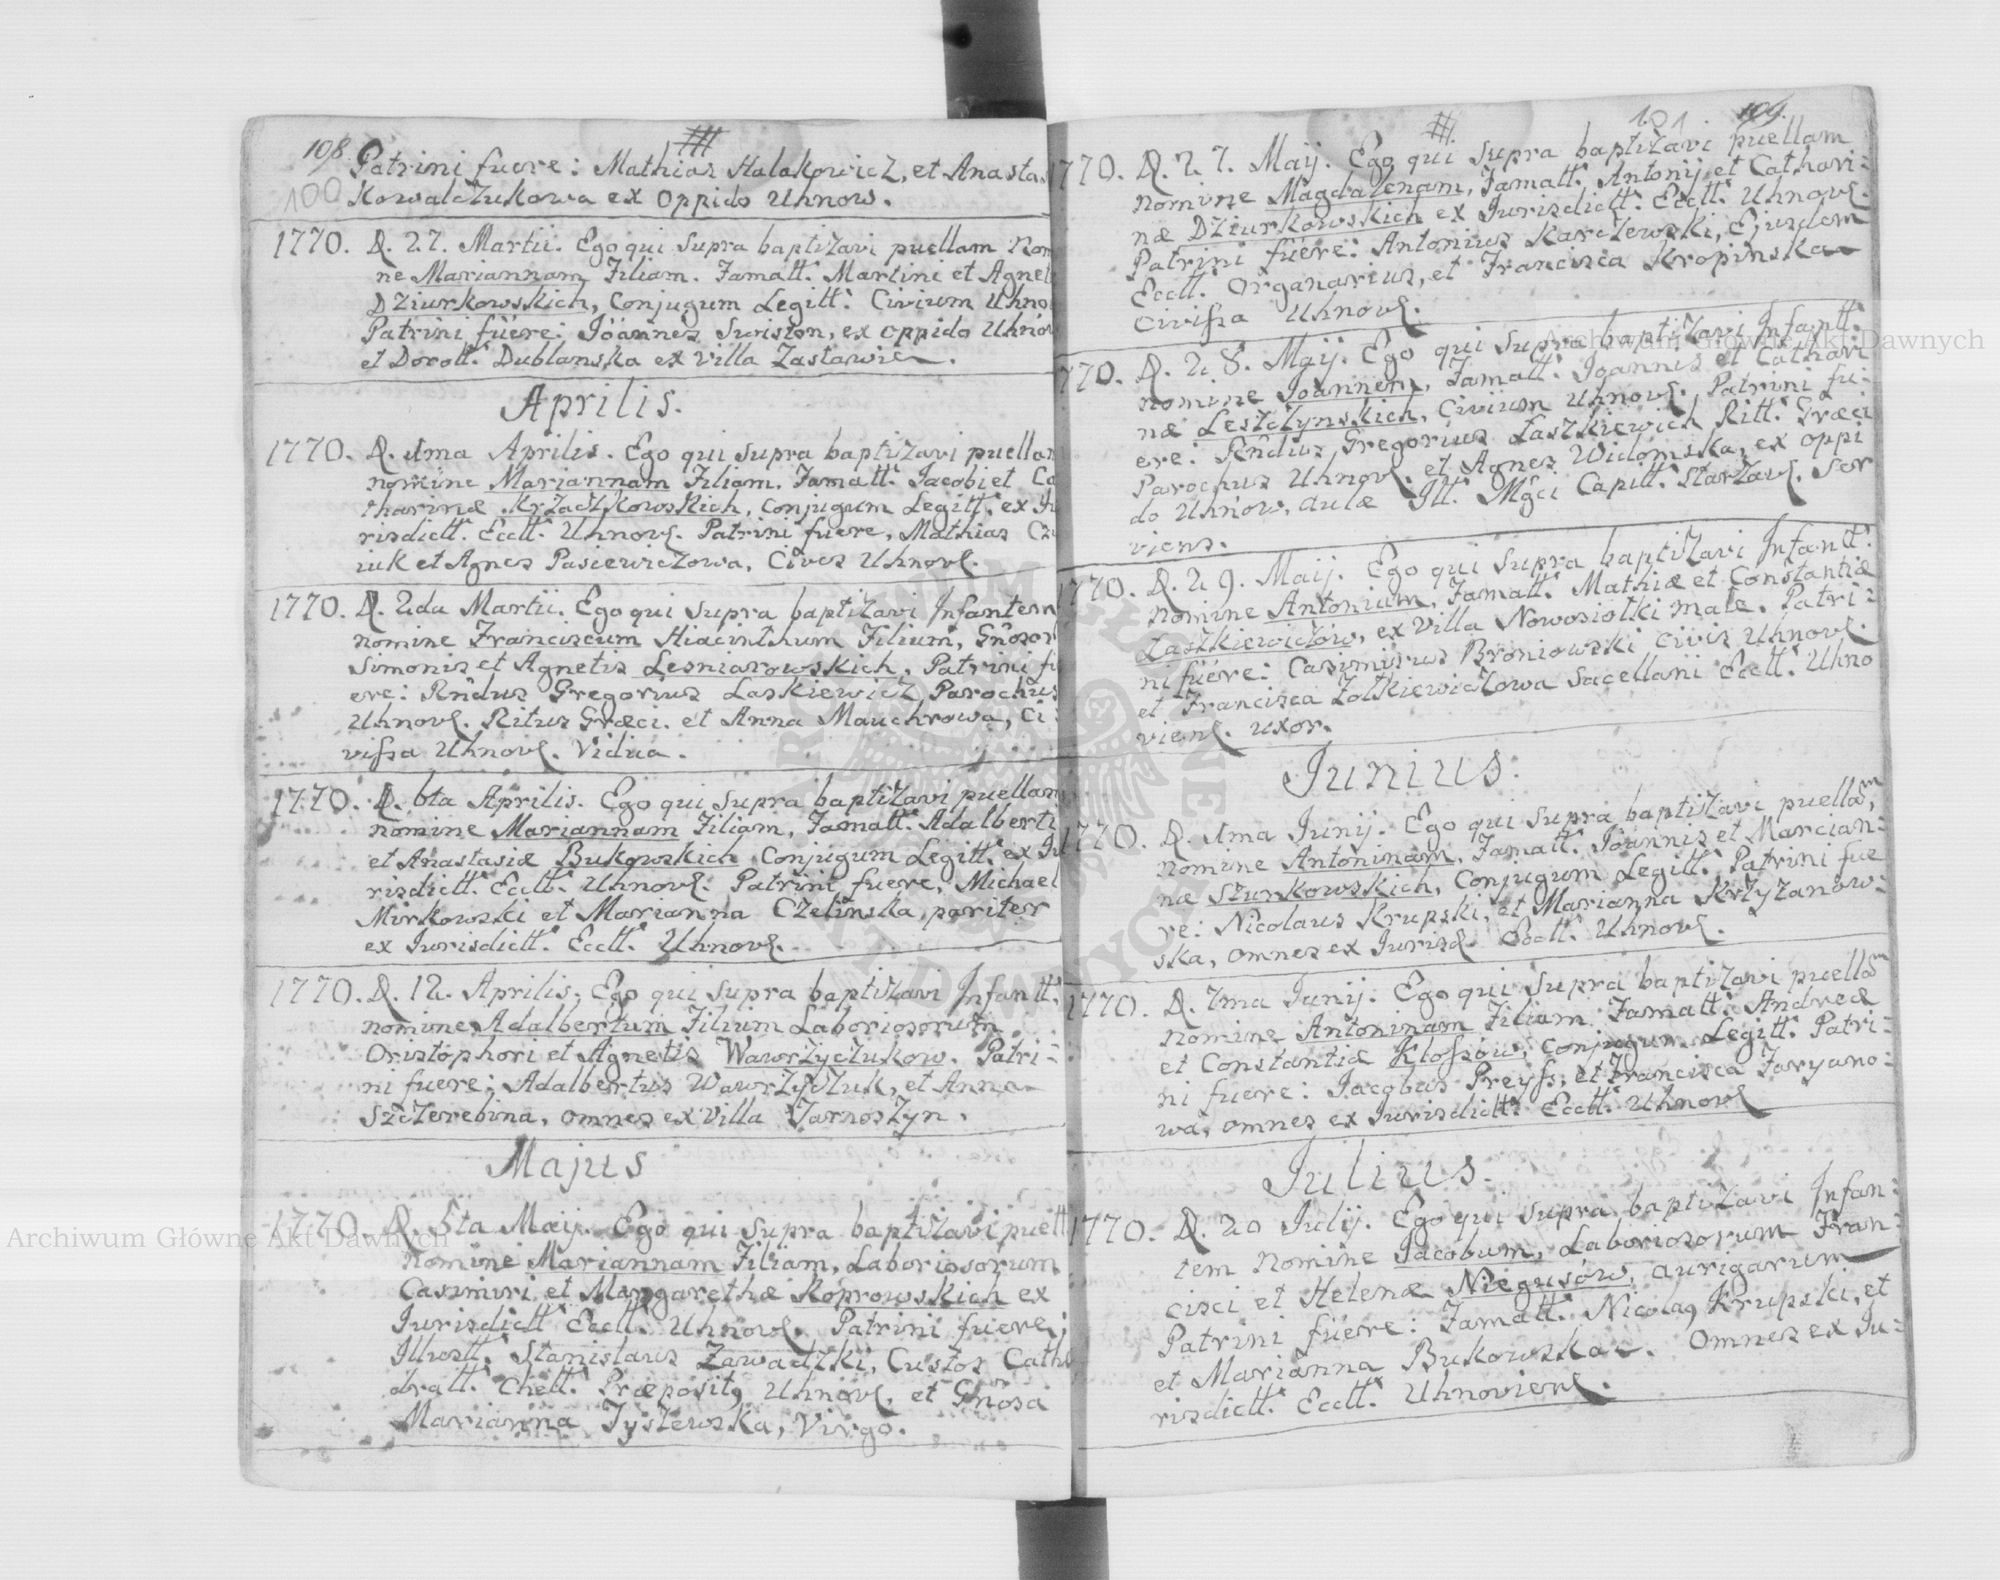 108.
100
Patrini fuere: Mathias Halakowicz, et Anasta
Kowalczukowa ex Oppido Uhnow.
1770. D. 27. Martii. Ego qui supra baptizavi puellam nom
ne Mariannam Filiam. Famatt. Martini et Agnet
Dziurkowskich, Conjugum Legitt. Civium Uhno
Patrini fuere: Joannes Suriston, ex oppido Uhnov
et Dorott. Dublanska ex Villa Zastawie.
Aprilis.
1770. D. 1ma Aprilis. Ego qui supra baptizavi puellam
nomine Mariannam Filiam. Famatt. Jacobi et Ca
tharinæ Krzaczkowskich, Conjugum Legitt. ex Ju
risdictt. Ecctt. Uhnov. Patrini fuere, Mathias Cz
iuk et Agnes Pasiewiczowa, Cives Uhnov.
1770. D. 2da Martii. Ego qui supra baptizavi Infantem
nomine Franciscum Hiacinthum Filium, Gnosor
Simonis et Agnetis Lesniarowskich, Patrini fu
ere: Rndus Gregorius Laskiewicz Parochus
Uhnov. Ritus Græci. et Anna Mauchrowa, Ci:
vissa Uhnov. Vidua.
1770. D. 6ta Aprilis. Ego qui supra baptizavi puellam
nomine Mariannam Filiam, Famatt. Adalberti
et Anastasiæ Bukowskich Conjugum Legitt. ex Ju
risdictt. Ecctt. Uhnov. Patrini fuere, Michael
Mirkowski et Marianna Czelinska, pariter
ex Jurisdictt. Ecctt. Uhnov.
1770. D. 12. Aprilis. Ego qui supra baptizavi Infantt.
nomine Adalbertum Filium Laboriosorum
Cristophori et Agnetis Wawrzyczukow. Patri:
ni fuere; Adalbertus Wawrzyczuk, et Anna
Szczerebina, omnes ex Villa Tarnoszyn.
Majus
1770. D. 5ta Maij. Ego qui supra baptizavi puell
nomine Mariannam Filiam, Laboriosorum
Casimiri et Margarethæ Koprowskich ex
Jurisdictt Ecctt. Uhnov. Patrini fuere;
Illustt. Stanislaus Zawadzki, Custos Cath
dratt. Chett. Præposit9 Uhnov. et Gnosa
Marianna Tyszewska, Virgo.
101 109.
1770. D. 27. Maij. Ego qui supra baptizavi puellam
nomine Magdalenam, Famatt. Antonij et Cathari:
næ Dziurkowskich ex Jurisdictt. Ecctt. Uhnov.
Patrini fuere: Antonius Karczewski, Ejusdem
Ecctt. Organarius, et Francisca Kropinska
Civissa Uhnov.
1770. D. 28. Maij. Ego qui supra baptizavi Infantt.
nomine Joannem, Famatt. Joannis et Cathari
næ Leszczynskich, Civium Uhnov. Patrini fu:
ere: Rndus Gregorius Laszkiewich Ritt. Græci
Parochus Uhnov. et Agnes Widomska, ex Oppi
do Uhnow, aulæ Ill. Mgci Capitt. Starzav. Ser
viens.
1770. D. 29. Maij. Ego qui supra baptizavi Infantt.
nomine Antonium, Famatt. Mathiæ et Constantiæ
Laszkiewiczow, ex Villa Nowosiolki male. Patri:
ni fuere: Casimirus Broniowski Civis Uhnov.
et Francisca Zolkiewiczowa Sacellani Ecctt. Uhno
viens. uxor.
Junius.
1770. D. 1ma Junij. Ego qui supra baptizavi puellam
nomine Antoninam, Famatt. Joannis et Marcian:
næ Szurkowskich, Conjugum Legitt. Patrini fue
re: Nicolaus Krupski, et Marianna Krzyzanow:
ska, omnes ex Jurisd. Ecctt. Uhnov.
1770. D. 7ma Junij. Ego qui supra baptizavi puellam
nomine Antoninam Filiam Famatt. Andreæ
et Constantiæ Klossow, Conjugum Legitt. Patri:
ni fuere: Jacobus Preyss, et Francisca Faryano:
wa, omnes ex Jurisdictt. Ecctt. Uhnov
Julius.
1770. D. 20 Julij. Ego qui supra baptizavi Infan:
tem nomine Jacobum, Laboriosorum Fran:
cisci et Helenæ Niegusow, aurigarum
Patrini fuere: Famatt. Nicola9 Krupski, et
et Marianna Bukowska. Omnes ex Ju:
risdictt. Ecctt. Uhnoviens.
Archiwum Główne Akt Dawnych
Archiwum Główne Akt Dawnych
ARCHIWUM GŁÓWNE AKT DAWNYCH